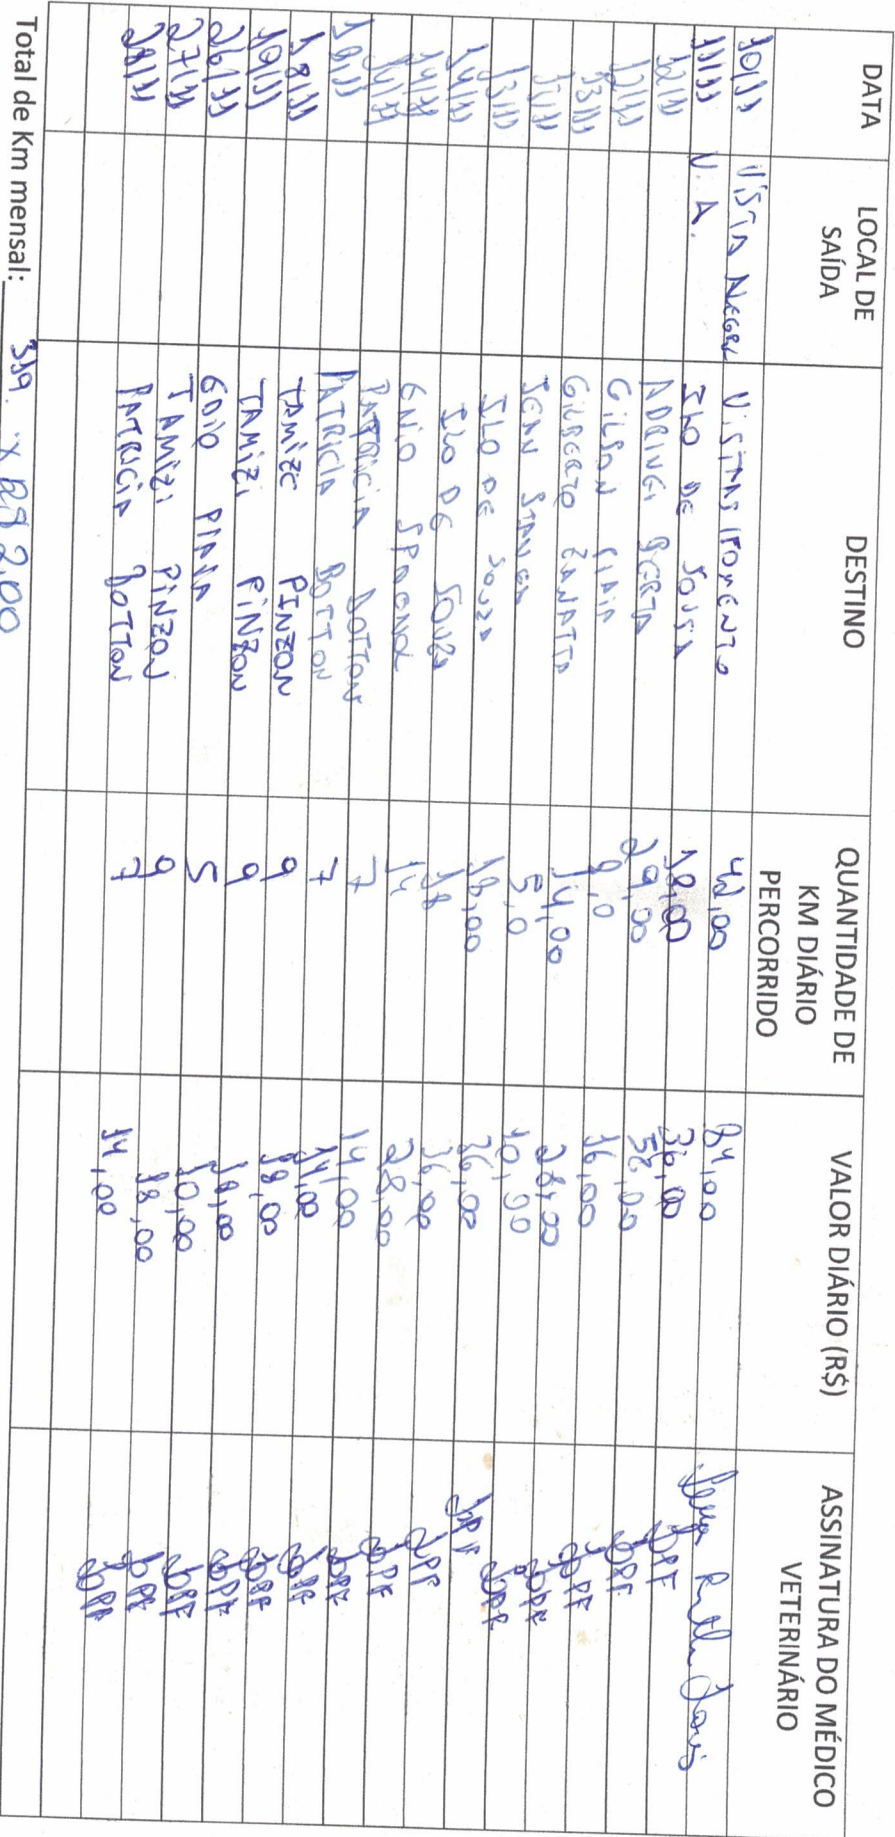 DATA LOCAL DE SAÍDA DESTINO QUANTIDADE DE KM DIÁRIO PERCORRIDO VALOR DIÁRIO (R$) ASSINATURA DO MÉDICO VETERINÁRIO
10/11 VISTA ALEGRE VISITAS FOMENTO 42,00 84,00
11/11 V. A. ILO DE SOUSA 18,00 36,00 JPF
12/11 ADRINGI BERTA 29,00 58,00 JPF
12/11 GILSON PIAIA 9,0 16,00 JPF
13/11 GILBERTO ZANATTA 14,00 28,00 JPF
JEAN STANGA 5,0 10,00 JPF
13/11 ILO DE SOUZA 18,00 36,00 JPF
14/11 ILO DE SOUZA 18 36,00 JPF
14/11 ENIO SPAGNOL 14 28,00 JPF
14/11 PATRICIA BOTTON 7 14,00 JPF
18/11 PATRICIA BOTTON 7 14,00 JPF
18/11 TAMIZE PINZON 9 18,00 JPF
19/11 TAMIZI PINZON 9 18,00 JPF
26/11 EDIO PIAIA 5 10,00 JPF
27/11 TAMIZI PINZON 9 18,00 JPF
28/11 PATRICIA BOTTON 7 14,00 JPF
Total de Km mensal: 319. x R$ 2,00